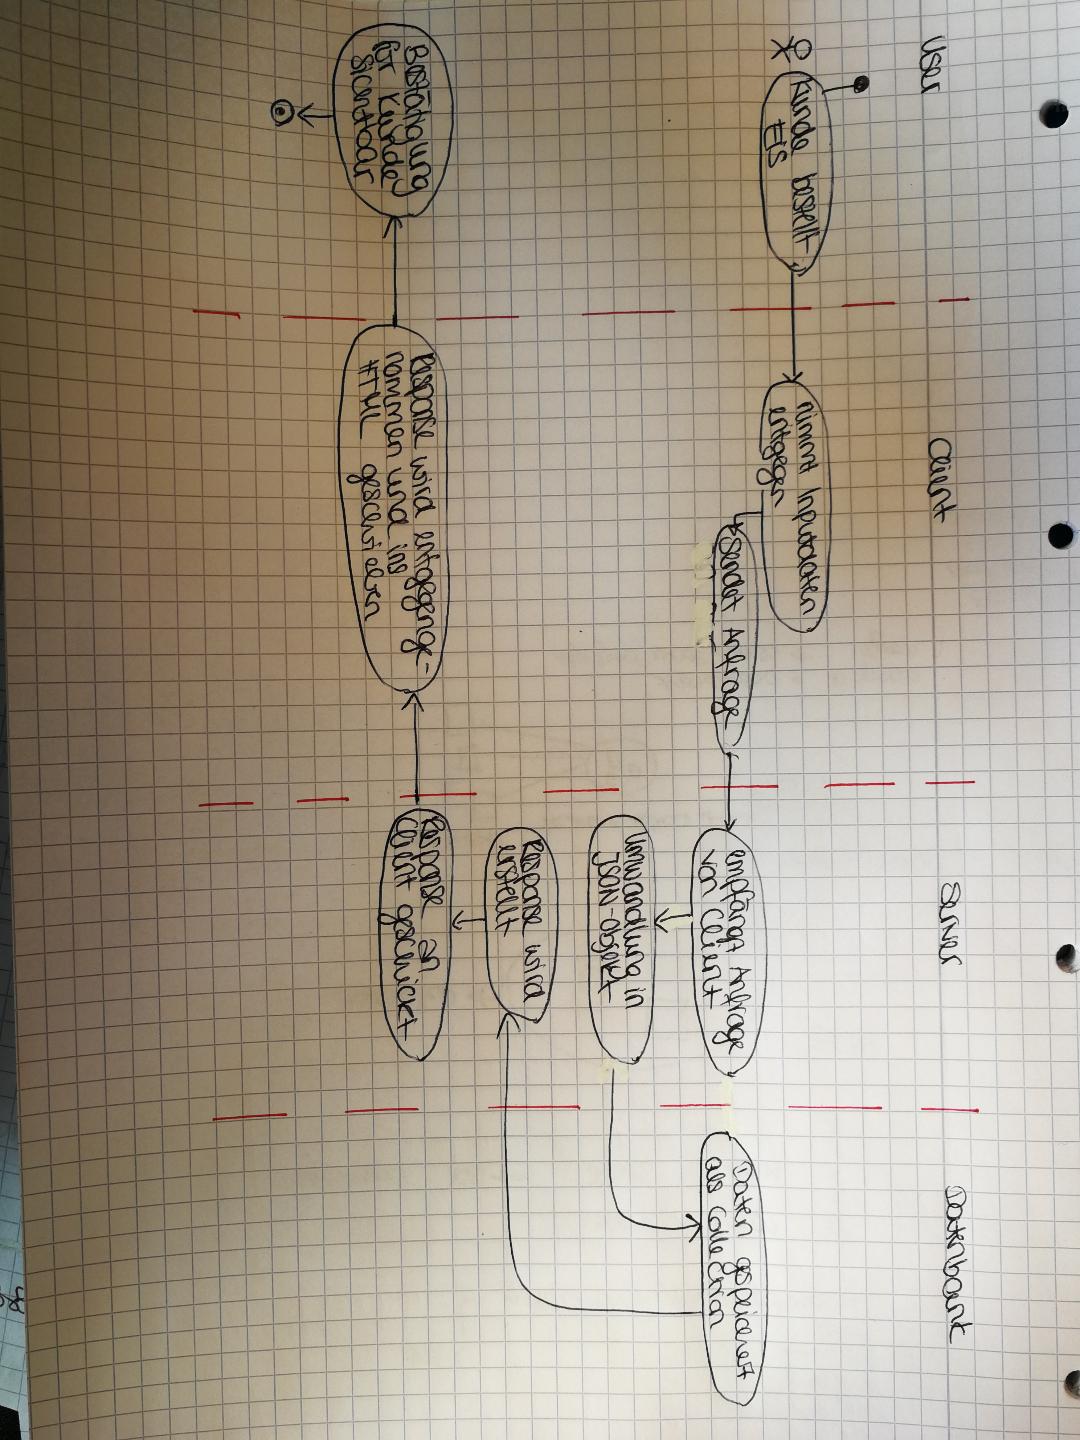 User
Client
Server
Datenbank
Kunde bestellt
EIS
nimmt Inputdaten
entgegen
sendet Anfrage
empfängt Anfrage
von Client
Umwandlung in
JSON-Objekt
Daten gespeichert
als Collection
Response wird
erstellt
Response an
Client geschickt
Response wird entgegenge-
nommen und ins
HTML geschrieben
Bestätigung
für Kunde
sichtbar